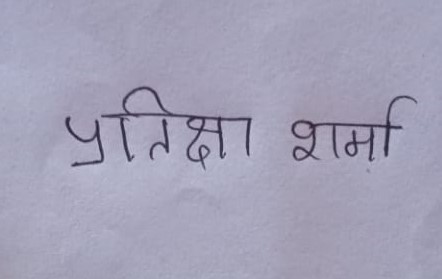 प्रतिक्षा शर्मा